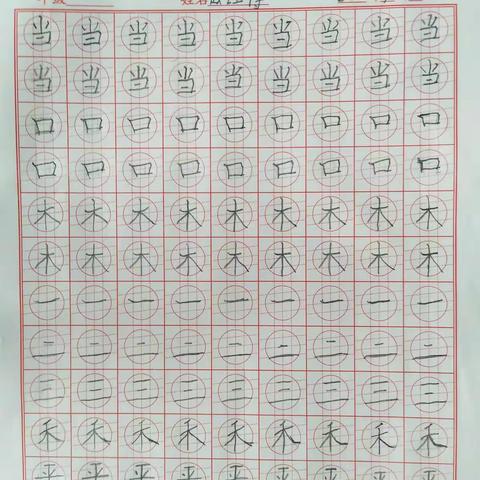 姓名
当当当当当当当当当
当当当当当当当当当
口口口口口口口口口
口口口口口口口口口
木木木木木木木木木
木木木木木木木木木
一一一一一一一一一
二二二二二二二二二
三三三三三三三三三
禾禾禾禾禾禾禾禾禾